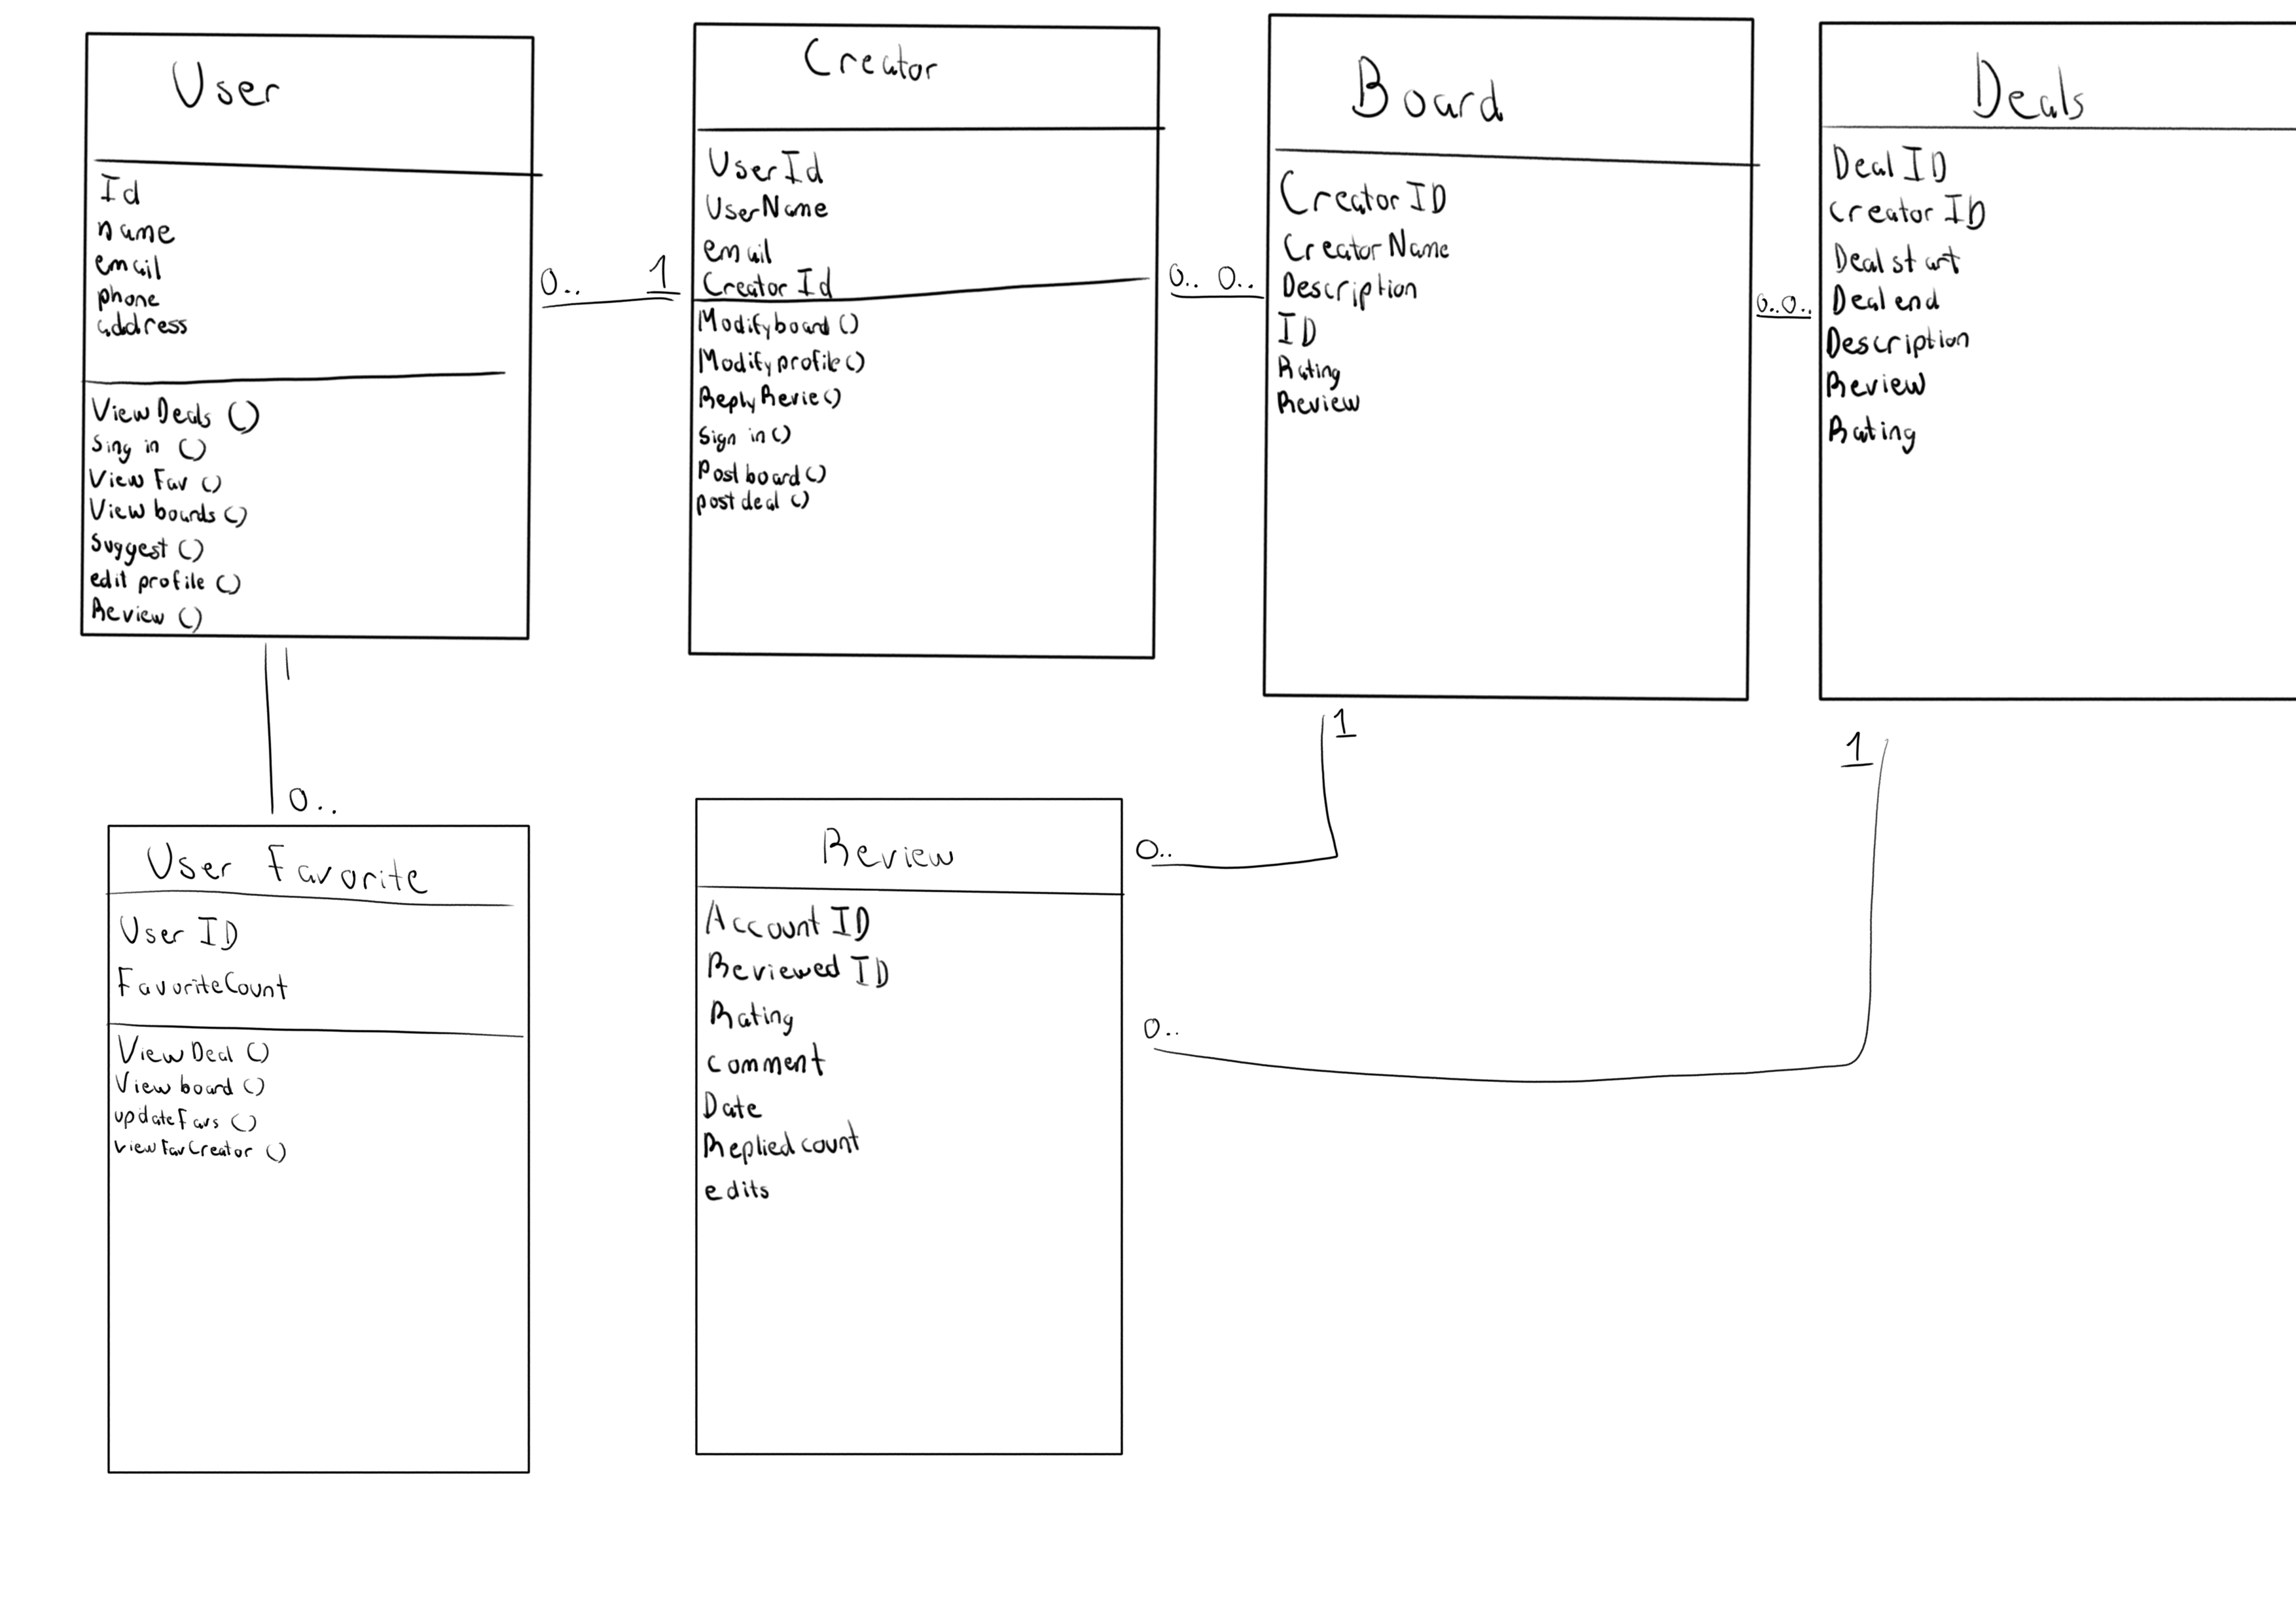 User
Id
name
email
phone
address
ViewDeals ()
Sing in ()
View Fav ()
View boards ()
Suggest ()
edit profile ()
Review ()
0.. 1
Creator
UserId
UserName
email
Creator Id
Modifyboard ()
Modify profile ()
Reply Revie ()
Sign in ()
Post board ()
post deal ()
0.. 0..
Board
Creator ID
Creator Name
Description
ID
Rating
Review
0..0..
Deals
Deal ID
Creator ID
Deal start
Deal end
Description
Review
Rating
1
0..
User Favorite
User ID
FavoriteCount
ViewDeal ()
View board ()
updateFavs ()
viewFavCreator ()
Review
Account ID
Reviewed ID
Rating
comment
Date
Replied count
edits
1
0..
1
0..